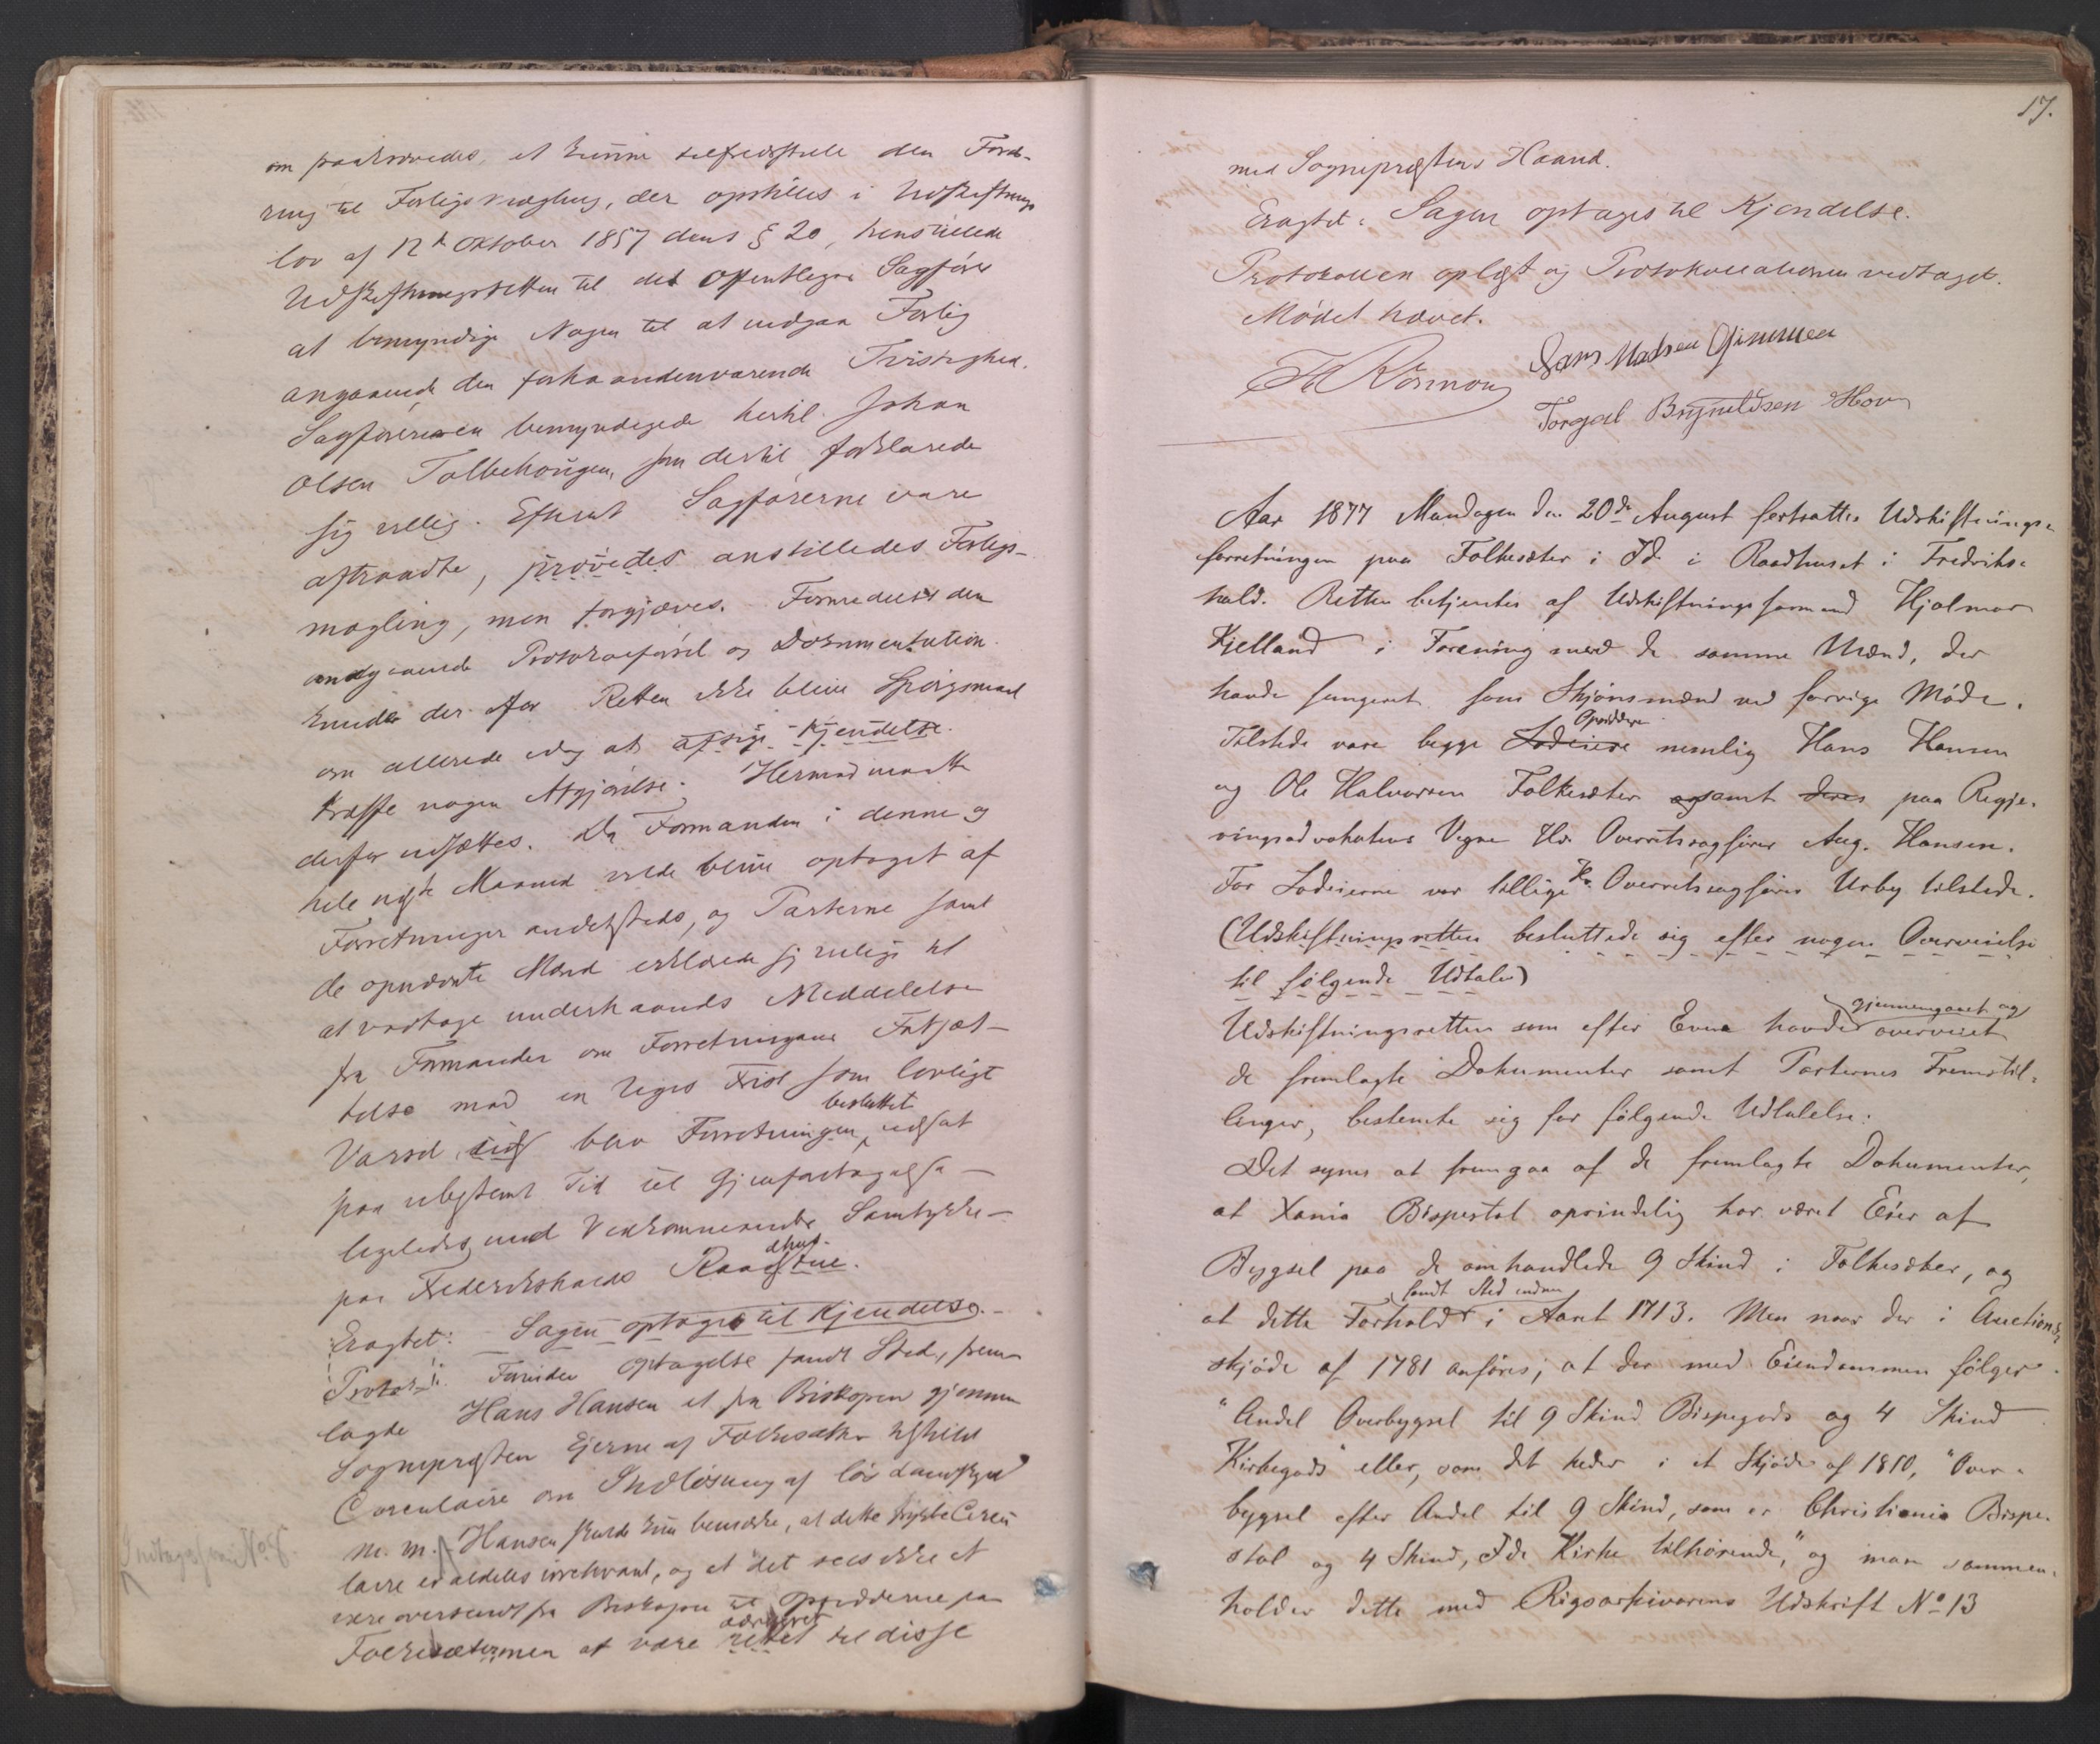 om paakrævedes, at kunne tilfredsstille den Ford-
ring til Forligsmægling, der opstilles i Udskiftnings
lov af 12te Oktober 1857 dens § 20, henstillede
Udskiftningsretten til det Offentliges Sagfører
at bemyndige Nogen til at indgaa Forlig
angaaende den forhaandenværende Tvistighed.
Sagføreren bemyndigede hertil Johan
Olsen Tolbehougen, som dertil forklarede
sig villig. Efterat Sagførerne vare
aftraadte, prøvedes anstilledes Forligs-
mægling, men forgjæves. Formedelst den
angaaende Protokoltilførsel og Dokumentation
kunde der for Retten ikke blive Spørgsmaal
om allerede idag at afsige Kjendelse.
træffe nogen Afgjørelse. Hermed maatte
derfor udsættes. Da Formanden i denne og
hele næste Maaned vilde blive optaget af
Forretninger andetsteds, og Parterne samt
de opnævnte Mænd erklærede sig villige til
at modtage underhaands Meddelelse
fra Formanden om Forretningens Fortsæt-
telse med en Uges Frist som lovligt
Varsel, blev Forretningen besluttet udsat
paa ubestemt Tid til Gjenforetagelse
ligeledes med Vedkommendes Samtykke
paa Frederikshalds Raadstue.
Eragtet: Sagen optages til Kjendelse.
Protok. Forinden Optagelse fandt Sted, frem
lagde Hans Hansen et fra Biskopen gjennem
Sognepræsten Ejerne af Folkesæter tilstillet
Circulaire om Indløsning af løs Landskyld
m. m. Hansen skulde kun bemærke, at dette trykte Circu
laire er aldeles irrelevant, og at det sees ikke at
være oversendt fra Biskopen til Opsidderne paa
Folkesæter men at være rettet til disse
Indtages som No 8.
17.
med Sognepræstens Haand.
Eragtet: Sagen optages til Kjendelse.
Protokollen oplæst og Protokollationen vedtaget.
Mødet hævet.
Hans Madsen Gimmen
Torgal Brynildsen Hov
Aar 1877 Mandagen den 20de August fortsattes Udskiftnings-
forretningen paa Folkesæter i Id i Raadhuset i Fredriks-
hald. Retten betjentes af Udskiftningsformand Hjalmar
Kjelland i Forening med de samme Mænd, der
havde fungeret som Skjønsmænd ved forrige Møde.
Tilstede vare begge Lodeiere Opsiddere nemlig Hans Hansen
og Ole Halvorsen Folkesæter og samt deres paa Regje-
ringsadvokatens Vegne Hr. Overretssagfører Aug. Hansen.
For Lodeierne var tillige Hr. Overretssagfører Urby tilstede.
(Udskiftningsretten besluttede sig efter nogen Overveielse
til følgende Udtale)
Udskiftningsretten som efter Evne havde gjennemgaaet og overveiet
de fremlagte Dokumenter samt Parternes Fremstil-
linger, bestemte sig for følgende Udtalelse:
Det synes at fremgaa af de fremlagte Dokumenter,
at Xania Bispestol oprindelig har været Eier af
Bygsel paa de omhandlede 9 Skind i Folkesæter, og
at dette Forhold fandt Sted endnu i Aaret 1713. Men naar der i Auctions
skjøde af 1781 anføres, at der med Eiendommen følger
"Andel Overbygsel til 9 Skind Bispegods og 4 Skind
Kirkegods" eller, som det heder i et Skjøde af 1810, "Over-
bygsel efter Andel til 9 Skind, som er Christiania Bispe-
stol og 4 Skind, Ide Kirke tilhørende," og man sammen-
holder dette med Rigsarkivarens Udskrift No 13